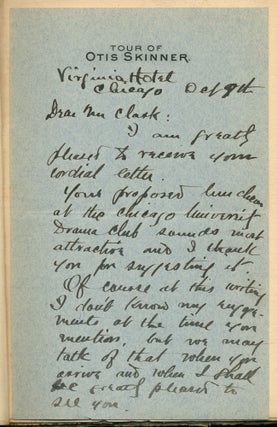 TOUR OF
OTIS SKINNER.
Virginia Hotel
Chicago Oct 9th
Dear Mr Clark:
I am greatly
pleased to receive your
cordial letter.
Your proposed luncheon
at the Chicago University
Drama Club sounds most
attractive and I thank
you for suggesting it.
Of course at this writing
I don't know my engage-
ments at the time you
mention, but we may
talk of that when you
arrive and when I shall
be greatly pleased to
see you.